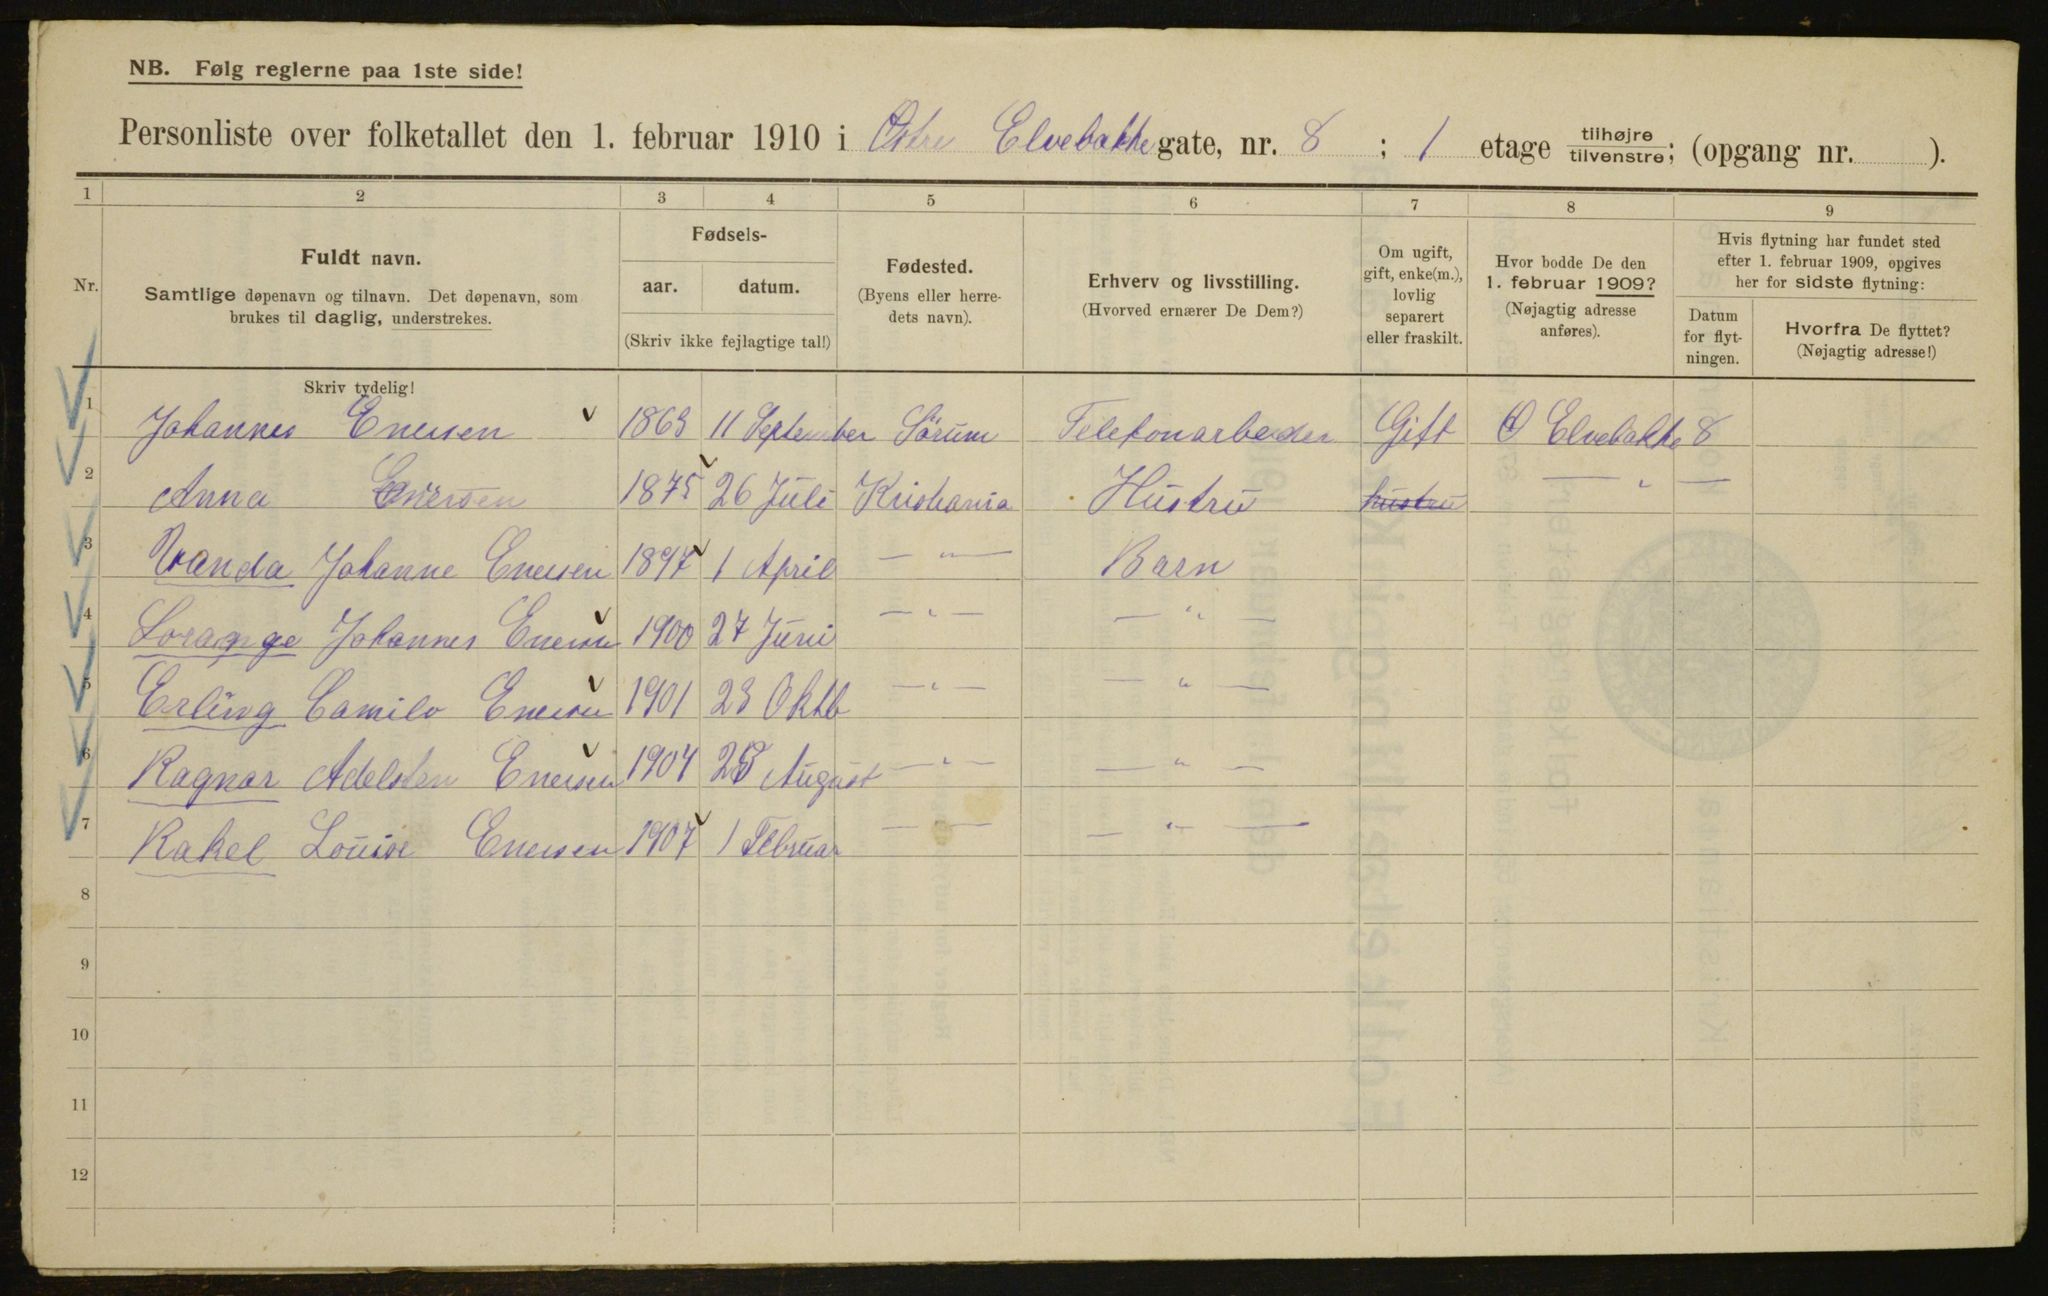 NB. Følg reglerne paa 1ste side!
Personliste over folketallet den 1. februar 1910 i Østre Elvebakke gate, nr. 8 ; 1 etage tilhøjre tilvenstre; (opgang nr. ).
1 2 3 4 5 6 7 8 9
Nr.
Fuldt navn.
Samtlige døpenavn og tilnavn. Det døpenavn, som
brukes til daglig, understrekes.
Fødsels-
aar. datum.
(Skriv ikke fejlagtige tal!)
Fødested.
(Byens eller herre-
dets navn).
Erhverv og livsstilling.
(Hvorved ernærer De Dem?)
Om ugift,
gift, enke(m.),
lovlig
separert
eller fraskilt.
Hvor bodde De den
1. februar 1909?
(Nøjagtig adresse
anføres).
Hvis flytning har fundet sted
efter 1. februar 1909, opgives
her for sidste flytning:
Datum
for flyt-
ningen.
Hvorfra De flyttet?
(Nøjagtig adresse!)
Skriv tydelig!
1 Johannes Enersen 1863 11 September Sörum Telefonarbeider Gift Ø Elvebakke 8
2 Anna Enersen 1875 26 Juli Kristiania Hustru hustru — " —
3 Wanda Johanne Enersen 1897 1 April — " — Barn
4 Lorange Johannes Enersen 1900 27 Juni — " — — " —
5 Erling Camilo Enersen 1901 23 Oktb — " — — " —
6 Ragnar Adelsten Enersen 1904 August — " — — " —
7 Rakel Louise Enersen 1907 1 Februar — " — — " —
8
9
10
11
12